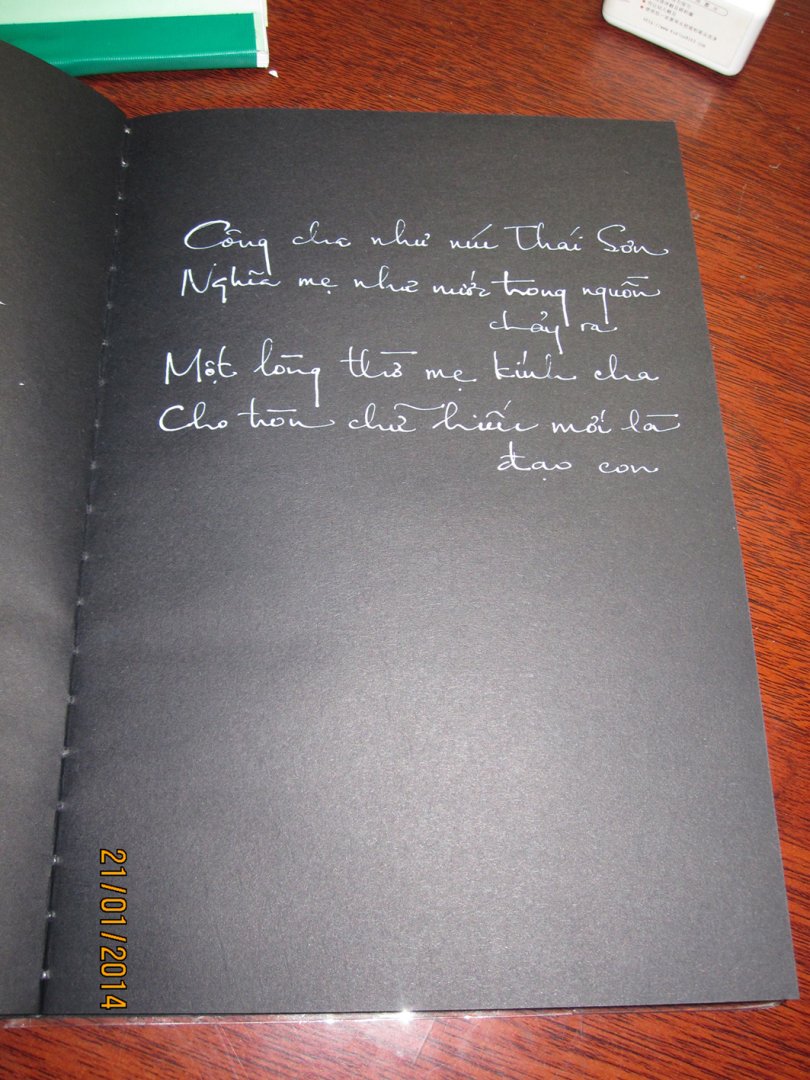 Công cha như núi Thái Sơn
Nghĩa mẹ như nước trong nguồn
chảy ra
Một lòng thờ mẹ kính cha
Cho tròn chữ hiếu mới là
đạo con
21/01/2014